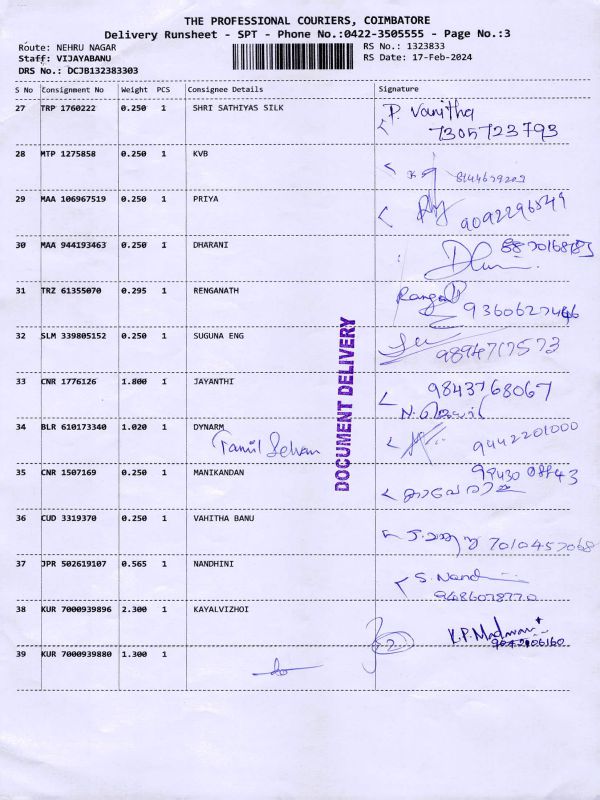 THE PROFESSIONAL COURIERS, COIMBATORE
Delivery Runsheet - SPT - Phone No.:0422-3505555 - Page No.:3
Route: NEHRU NAGAR RS No.: 1323833
Staff: VIJAYABANU RS Date: 17-Feb-2024
DRS No.: DCJB132383303
S No Consignment No Weight PCS Consignee Details Signature
27 TRP 1760222 0.250 1 SHRI SATHIYAS SILK P. Vanitha
7305723793
28 MTP 1275858 0.250 1 KVB
29 MAA 106967519 0.250 1 PRIYA 9092296549
30 MAA 944193463 0.250 1 DHARANI
31 TRZ 61355070 0.295 1 RENGANATH
32 SLM 339805152 0.250 1 SUGUNA ENG
9894717573
33 CNR 1776126 1.800 1 JAYANTHI 9843768067
34 BLR 610173340 1.020 1 DYNARM 9442201000
Tamil Selvan
35 CNR 1507169 0.250 1 MANIKANDAN
36 CUD 3319370 0.250 1 VAHITHA BANU
7010457068
37 JPR 502619107 0.565 1 NANDHINI S. Nand
38 KUR 7000939896 2.300 1 KAYALVIZHOI
2
39 KUR 7000939880 1.300 1
DOCUMENT DELIVERY